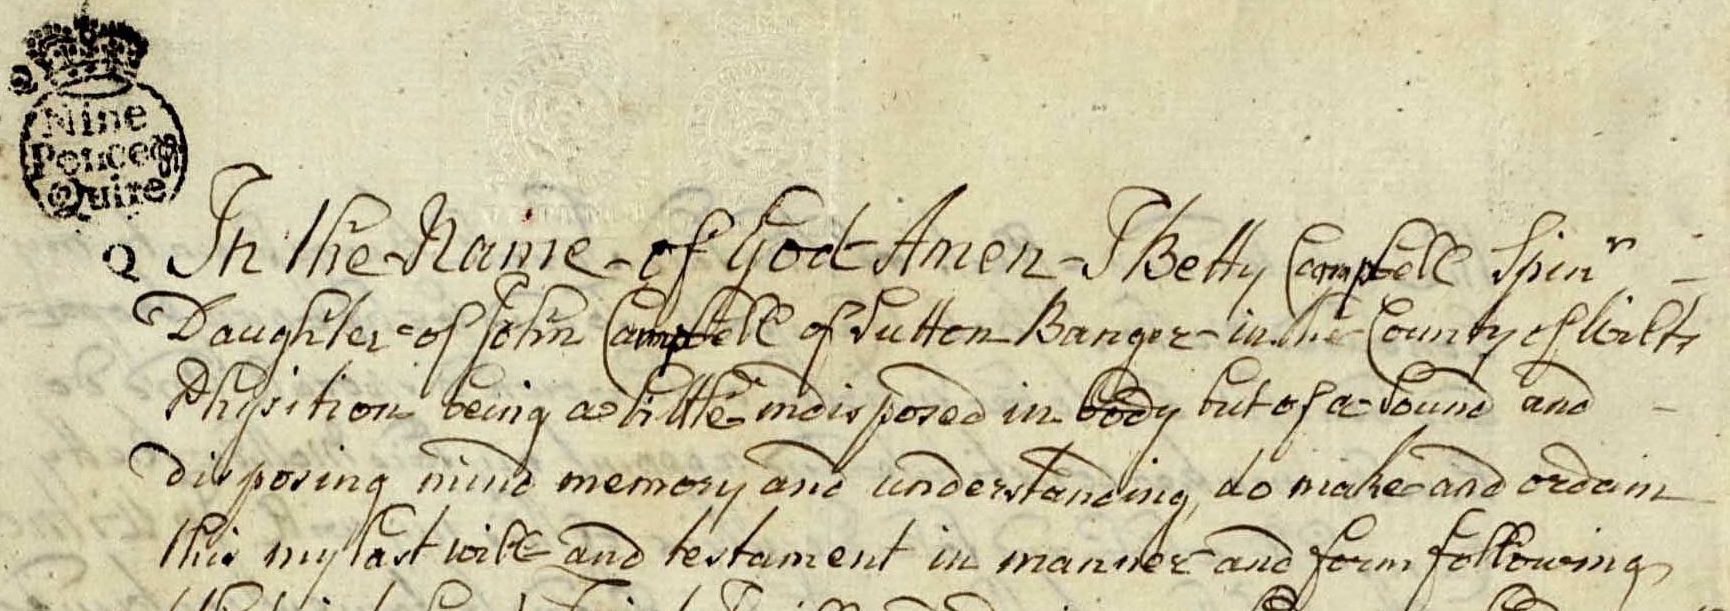 Nine
Pence ⅌
Quire
In the Name of God Amen I Betty Campbell Spinr
Daughter of John Campbell of Sutton Banger in the County of Wilts
Phisition being a little indisposed in body but of a sound and
disposing mind memory and understanding, do make and ordain
this my last will and testament in manner and form following